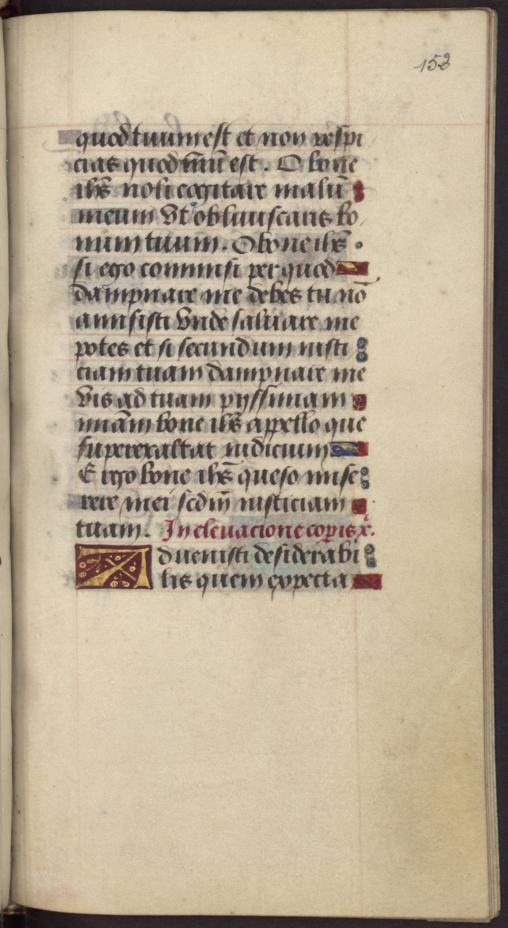 153
quod tuum est et non respi
cias quod meū est. O bone
ihs noli cogitare malū
meum vt obliuiscaris bo
num tuum. O bone ihs
si ego commisi per quod
dampnare me debes tu nō
amisisti vnde saluare me
potes et si secundum iusti
ciam tuam dampnare me
vis ad tuam pyssimam
miām bone ihs appello que
superexaltat iudicium
Ergo bone ihs queso mise
rere mei scdm iusticiam
tuam. In eleuacione corpis x.
Aduenisti desiderabi
lis quem expecta